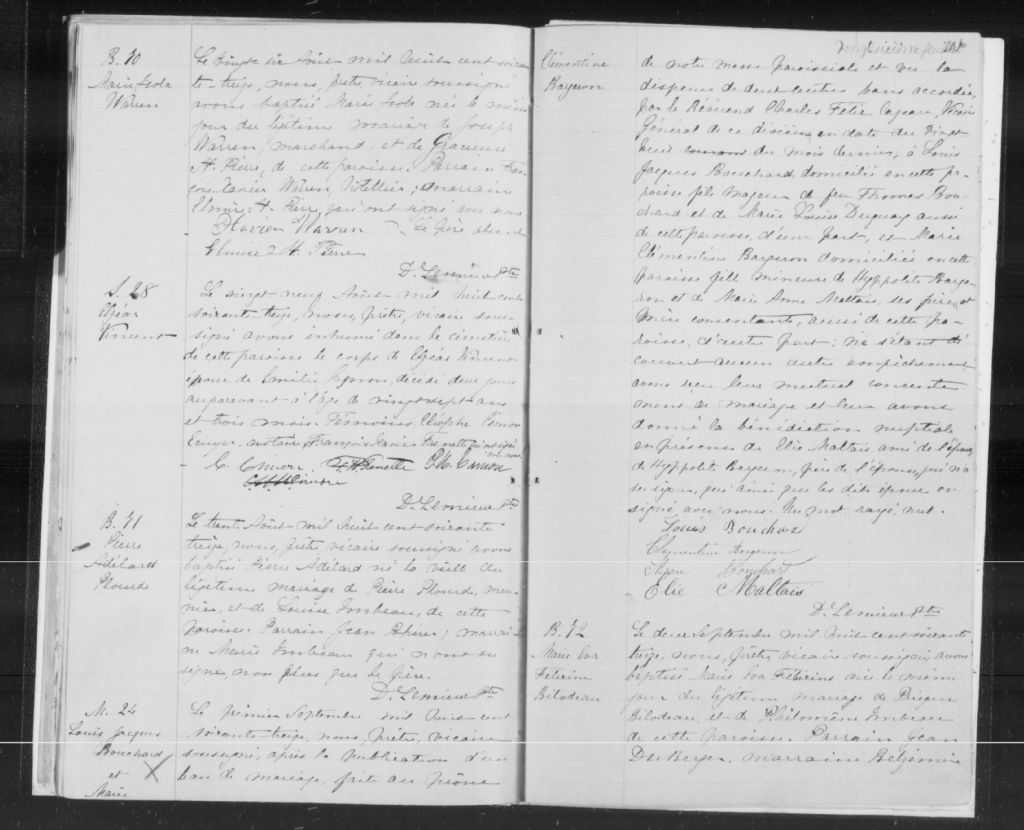 B. 70
Marie Isola
Warren
Le vingt six Août mil huit cent soixan-
te-treize, nous, prêtre vicaire soussigné
avons baptisé Marie Isola née le même
jour du légitime mariage de Joseph
Warren, marchand, et de Gracieuse
St. Pierre, de cette paroisse. Parrain Fran-
çois-Xavier Warren, hôtellier; marraine
Elmire St. Pierre, qui ont signé avec nous
F Xavier Warren Le père absent
Elmire St. Pierre
D. Lemieux Ptre
S. 28
Elzéar
Vincent
Le vingt-neuf Août mil huit cent
soixante-treize, nous, prêtre, vicaire sous-
signé avons inhumé dans le cimetière
de cette paroisse le corps de Elzéar Vincent
époux de Emilie Gagnon, décédé deux jours
auparavant à l'âge de vingt-sept ans
et trois mois. Témoins Cléophe Cimon
Ecuyer, notaire, François-Xavier Frenette qui ont signé
avec nous
C. Cimon F. X. Frenette Cimon
D. Lemieux Ptre
B. 71
Pierre
Adélard
Plourde
Le trente Août mil huit cent soixante
treize, nous, prêtre, vicaire soussigné avons
baptisé Pierre Adélard né la veille du
légitime mariage de Pierre Plourde, meu-
nier, et de Louise Imbeau, de cette
paroisse. Parrain Jean ; marrai-
ne Marie Imbeau qui n'ont su
signer, non plus que le père.
D. Lemieux Ptre
M. 24
Louis Jacques
Bouchard
et
Marie
Le premier Septembre mil huit cent
soixante-treize, nous, prêtre, vicaire
soussigné, après la publication d'un
ban de mariage, faite au prône
Vingt sixième feuillet
Clémentine
Bargeron
de notre messe paroissiale et vu la
dispense de deux autres bans accordée
par le Révérend Charles Félix Cazeau, Vicaire
Général de ce diocèse en date du vingt
huit courant du mois dernier, à Louis
Jacques Bouchard, domicilié en cette pa-
roisse fils majeur de feu Thomas Bou-
chard et de Marie Louise Duguay aussi
de cette paroisse, d'une part, et Marie
Clémentine Bargeron domiciliée en cette
paroisse fille mineure de Hyppolite Barge-
ron et de Marie Anne Maltais, ses père et
mère consentants, aussi de cette pa-
roisse, d'autre part; ne s'étant dé-
couvert aucun autre empêchement
avons reçu leur mutuel consente
ment de mariage et leur avons
donné la bénédiction nuptiale
en présence de Elie Maltais ami de l'époux,
de Hyppolite Bargeron, père de l'épouse, qui n'a
su signer, qui ainsi que les dits époux ont
signé avec nous. Un mot rayé nul.
Louis Bouchard
Clementine Bargeron
Bouchard
Elie Maltais
D. Lemieux Ptre
B. 72
Marie Eva
Bilodeau
Le deux Septembre mil huit cent soixante
treize, nous, prêtre, vicaire soussigné, avons
baptisé Marie Eva née le même
jour du légitime mariage de
Bilodeau, et de Philomène Imbeau
de cette paroisse. Parrain Jean
DuBerger, marraine Béljémie